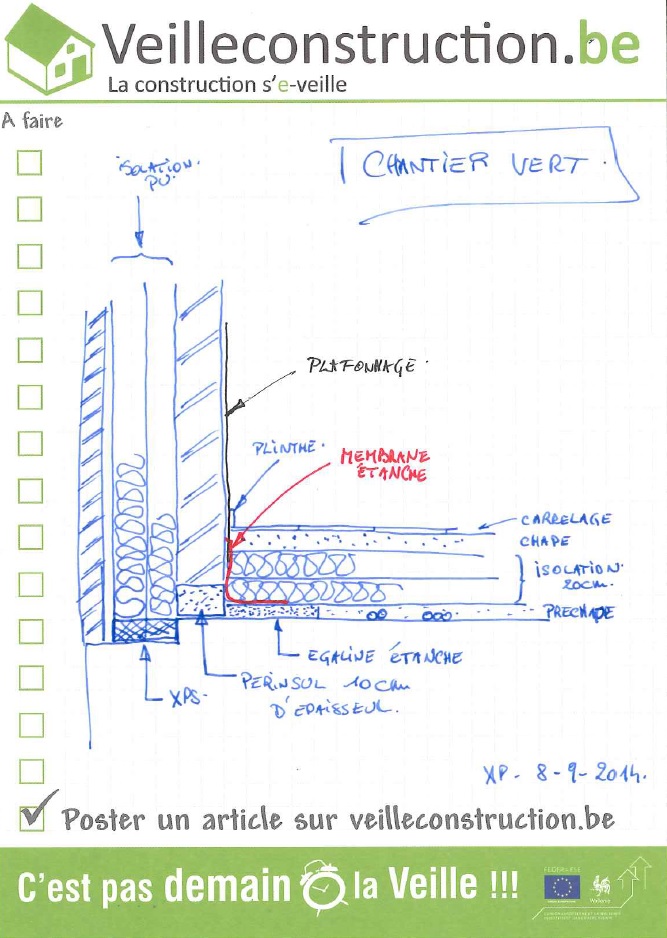 Veilleconstruction.be
La construction s'e-veille
A faire
CHANTIER VERT.
ISOLATION.
PU.
PLAFONNAGE.
PLINTHE.
MEMBRANE
ÉTANCHE
CARRELAGE
CHAPE
ISOLATION
20cm.
PRECHAPE
EGALINE ÉTANCHE
PERINSUL 10cm
D'EPAISSEUR.
XPS-
XP- 8-9-2014.
Poster un article sur veilleconstruction.be
C'est pas demain la Veille !!!